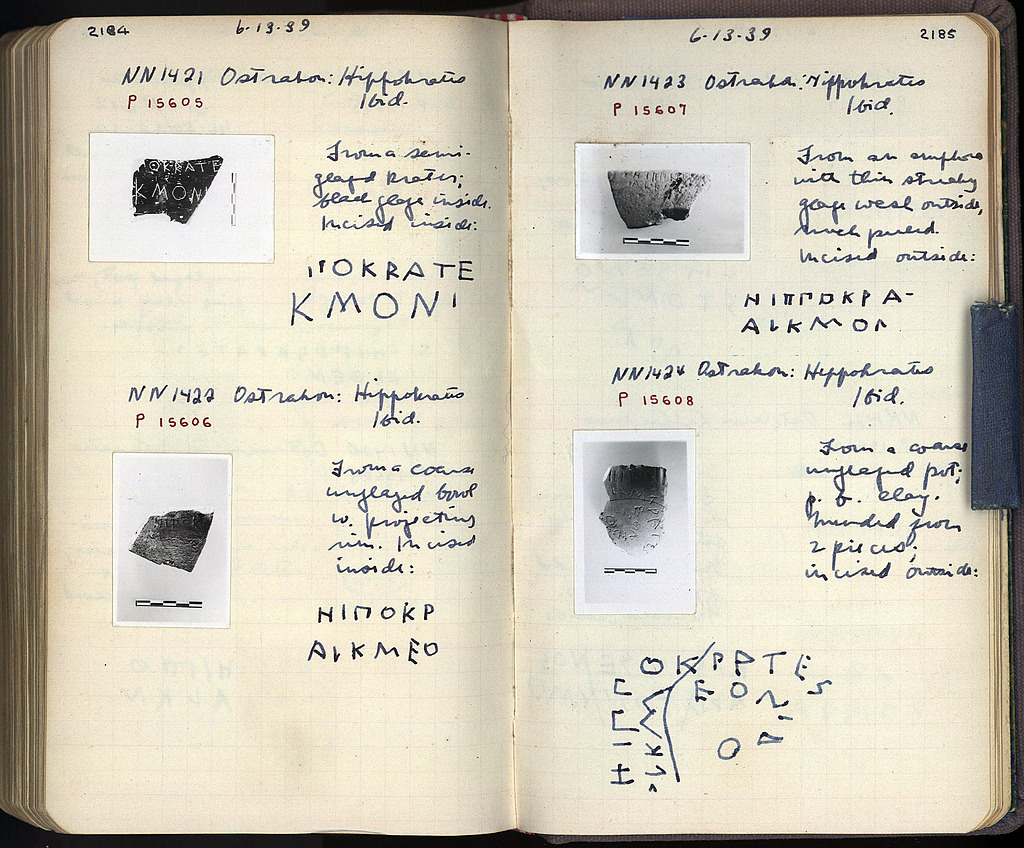 2184
6-13-39
NN1421 Ostrakon: Hippokrates
Ibid.
P 15605
From a semi-
glazed krater;
black glaze inside.
Incised inside:
ΠΟΚRΑΤΕ
ΚΜΟΝΙ
NN1422 Ostrakon: Hippokrates
Ibid.
P 15606
From a coarse
unglazed bowl
w. projecting
rim. Incised
inside:
ΗΙΠΟΚΡ
ΑLΚΜΕΟ
2185
6-13-39
NN1423 Ostrakon: Hippokrates
Ibid.
P 15607
From an amphora
with thin streaky
glaze wash outside,
much peeled.
Incised outside:
ΗΙΠΠΟΚΡΑ-
ΑLΚΜΟΝ
NN1424 Ostrakon: Hippokrates
Ibid.
P 15608
From a coarse
unglazed pot;
p. b. clay.
Mended from
2 pieces;
incised outside:
ΗΙΠΠΟΚΡΑΤΕS
ΑLΚΜΕΟΝΙD
Ο